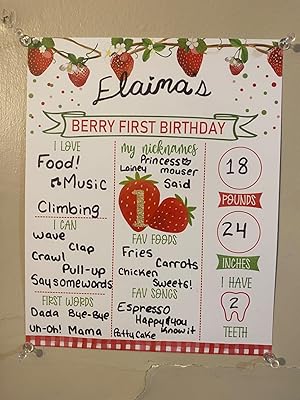 Elaina's
BERRY FIRST BIRTHDAY
I LOVE
Food!
Music
Climbing
I CAN
Wave
Clap
Crawl
Pull-up
Say some words
FIRST WORDS
Dada Bye-Bye
Uh-Oh! Mama
my nicknames
Princess
Lainey mouser
Said
1
FAV FOODS
Fries
Carrots
Chicken
Sweets!
FAV SONGS
Espresso
Happy & You
Know it
Patty Cake
18
POUNDS
24
INCHES
I HAVE
2
TEETH